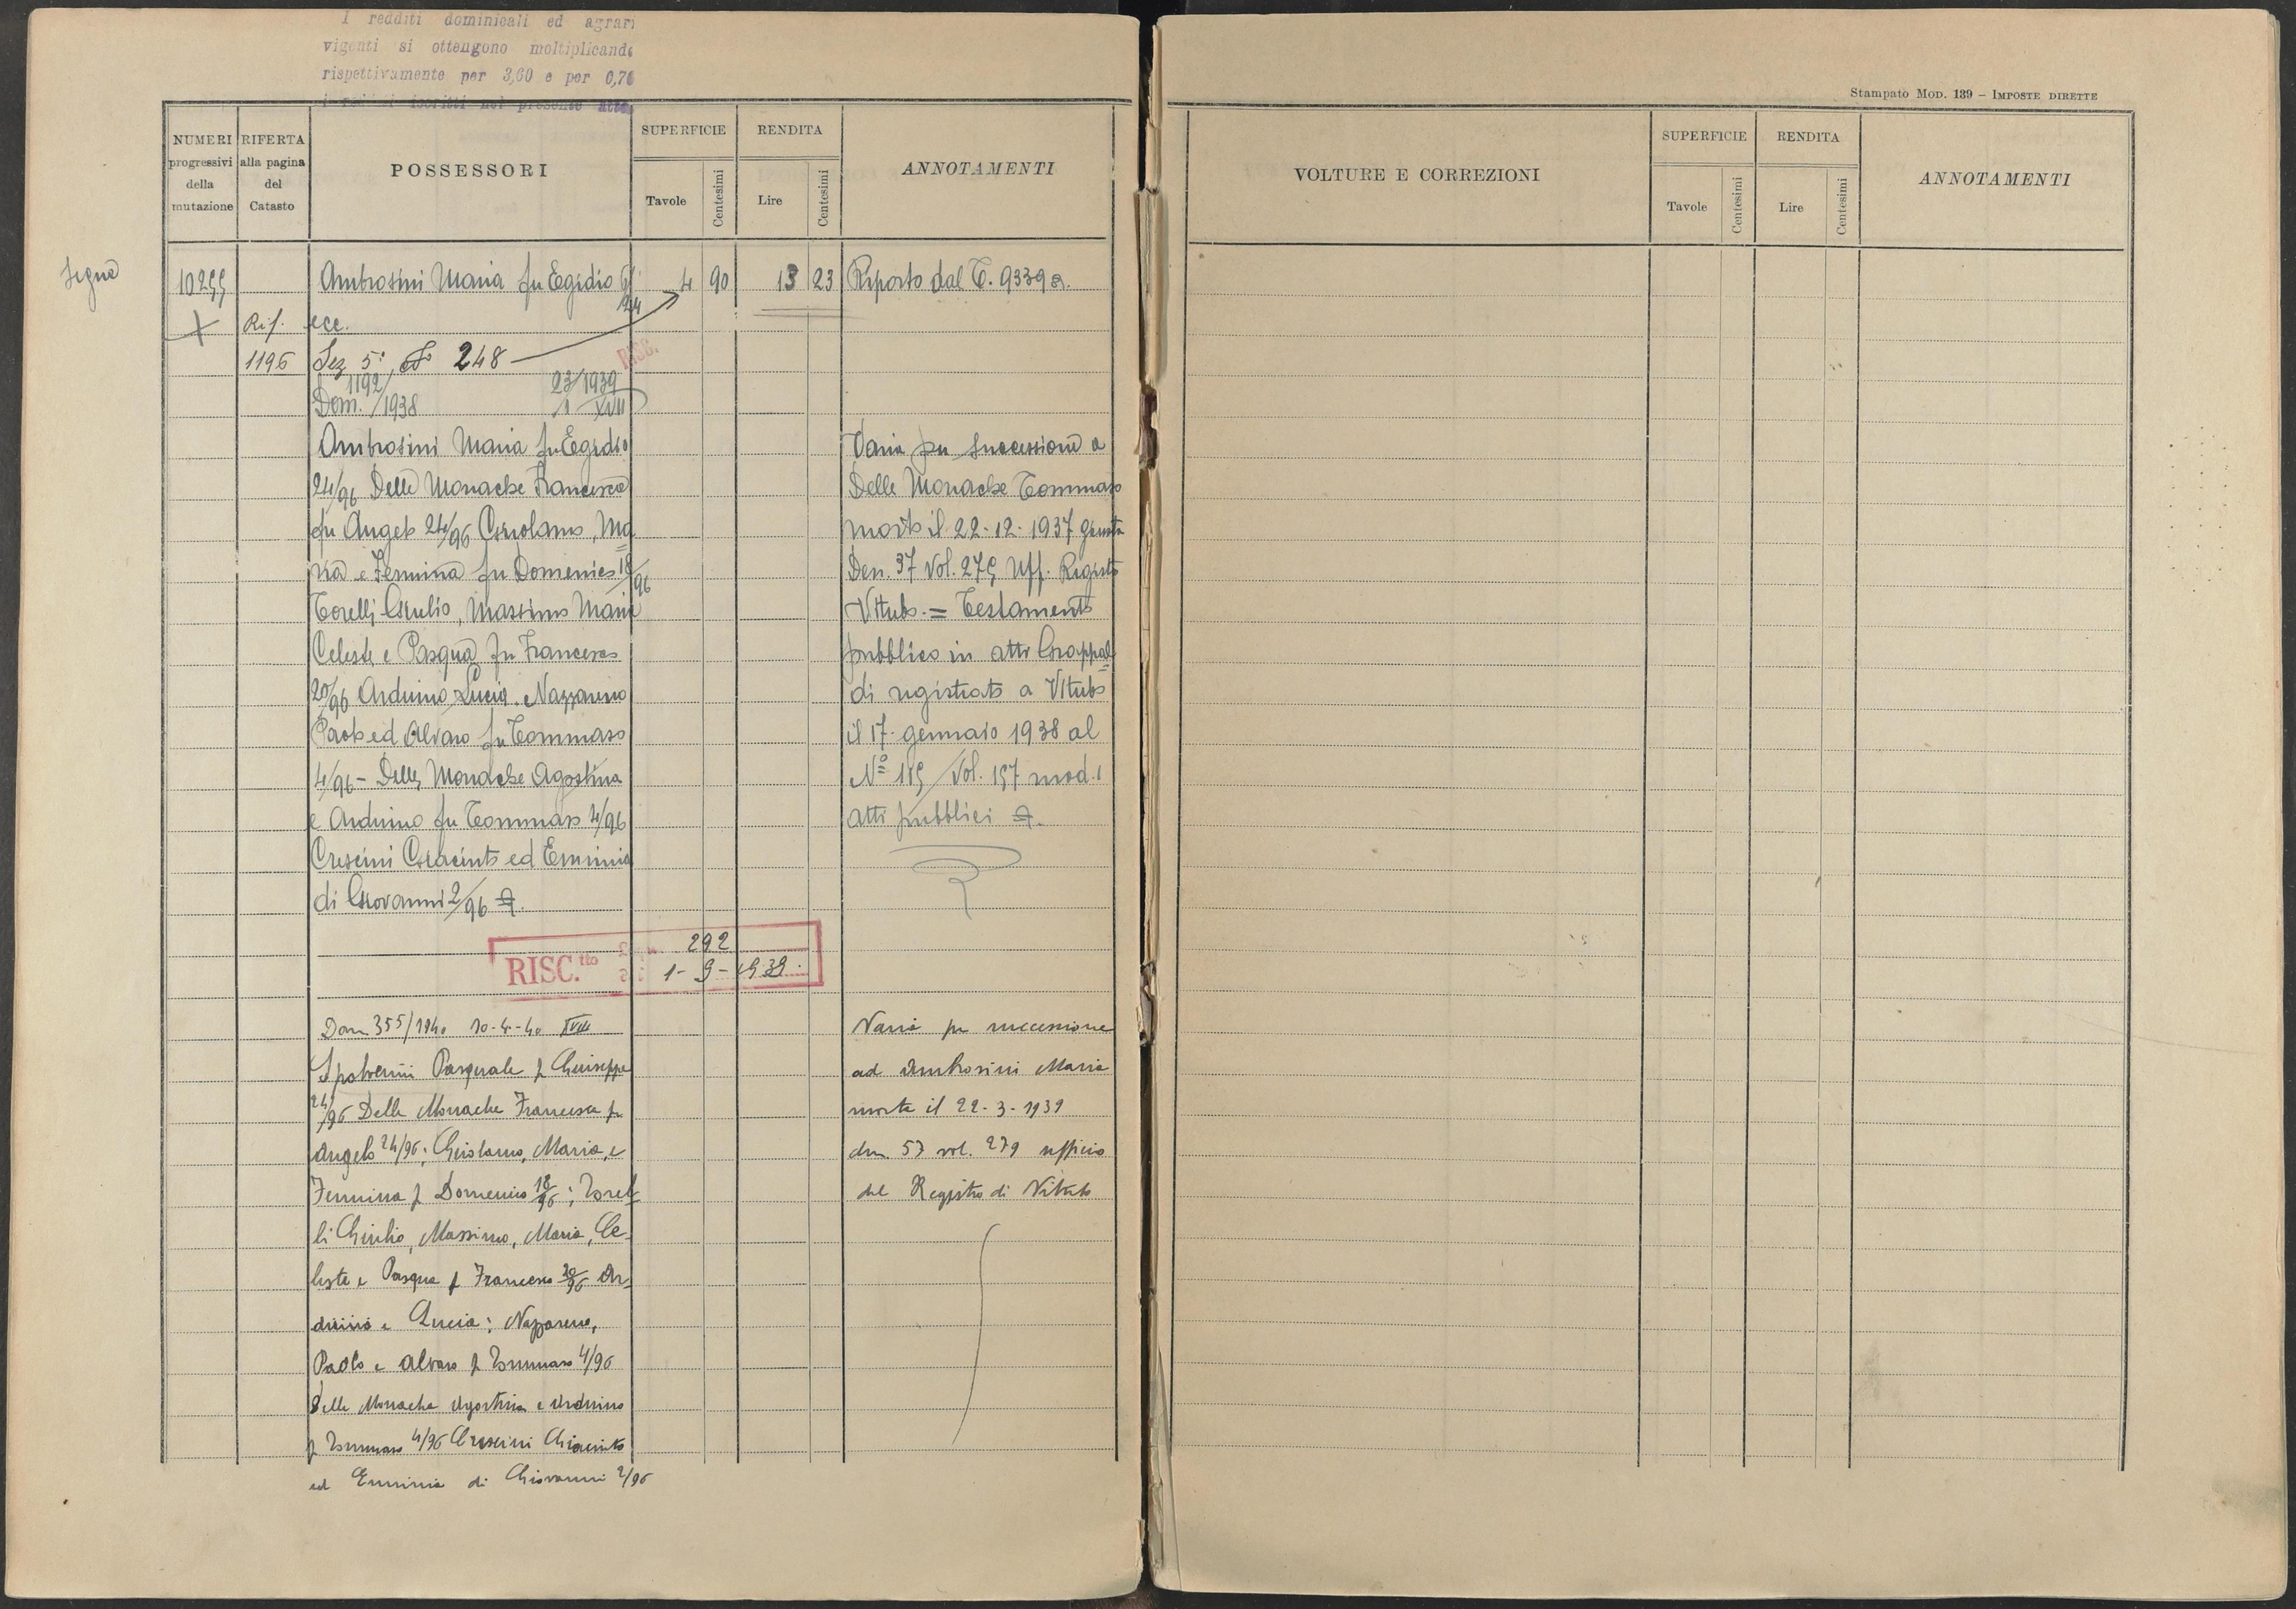 I redditi dominicali ed agrari
vigenti si ottengono moltiplicando
rispettivamente per 3,60 e per 0,70
i redditi iscritti nel presente atto
Stampato MOD. 139 – IMPOSTE DIRETTE
NUMERI progressivi della mutazione
RIFERTA alla pagina del Catasto
POSSESSORI
SUPERFICIE
Tavole
Centesimi
RENDITA
Lire
Centesimi
ANNOTAMENTI
VOLTURE E CORREZIONI
SUPERFICIE
Tavole
Centesimi
RENDITA
Lire
Centesimi
ANNOTAMENTI
Segue
10255 Ambrosini Maria fu Egidio 4 90 13 23 Riporto dal T. 9339
24
Rif. ecc.
1196 Sez 5ª 248
RISC.
1192 23/1939
Dom. /1938 1 XVII
Ambrosini Maria fu Egidio
24/96 Delle Monache Francesca
fu Angelo 24/96 Girolamo, Ma
ria e Femina fu Domenico 18/96
Torelli Giulio, Massimo Maria
Celeste e Pasqua fu Francesco
20/96 Arduino Lucia Nazzareno
Paolo ed Alvaro fu Tommaso
4/96 – Delle Monache Agostina
e Arduino fu Tommaso 4/96
Crescini Giacinto ed Erminia
di Giovanni 2/96
Varia per successione a
Delle Monache Tommaso
morto il 22-12-1937 giusta
Den. 37 Vol. 275 Uff. Registro
Viterbo = Testamento
pubblico in atti Grappol
di registrato a Viterbo
il 17 gennaio 1938 al
Nº 115 Vol. 157 mod. 1
atti pubblici
RISC.tto 292
1-9-1939
Dom 355/1940 10-4-40 XVIII
Spolverini Pasquale f Giuseppe
24/96 Delle Monache Francesca fu
Angelo 24/96; Girolamo, Maria, e
Femina f Domenico 18/96; Torel
li Giulio, Massimo, Maria, Ce
leste e Pasqua f Francesco 20/96 Ar
duino e Lucia; Nazzareno,
Paolo e Alvaro f Tommaso 4/96
Delle Monache Agostina e Arduino
f Tommaso 4/96 Crescini Giacinto
ed Erminia di Giovanni 2/96
Varia per successione
ad Ambrosini Maria
morta il 22-3-1939
den 57 vol. 279 ufficio
del Registro di Viterbo